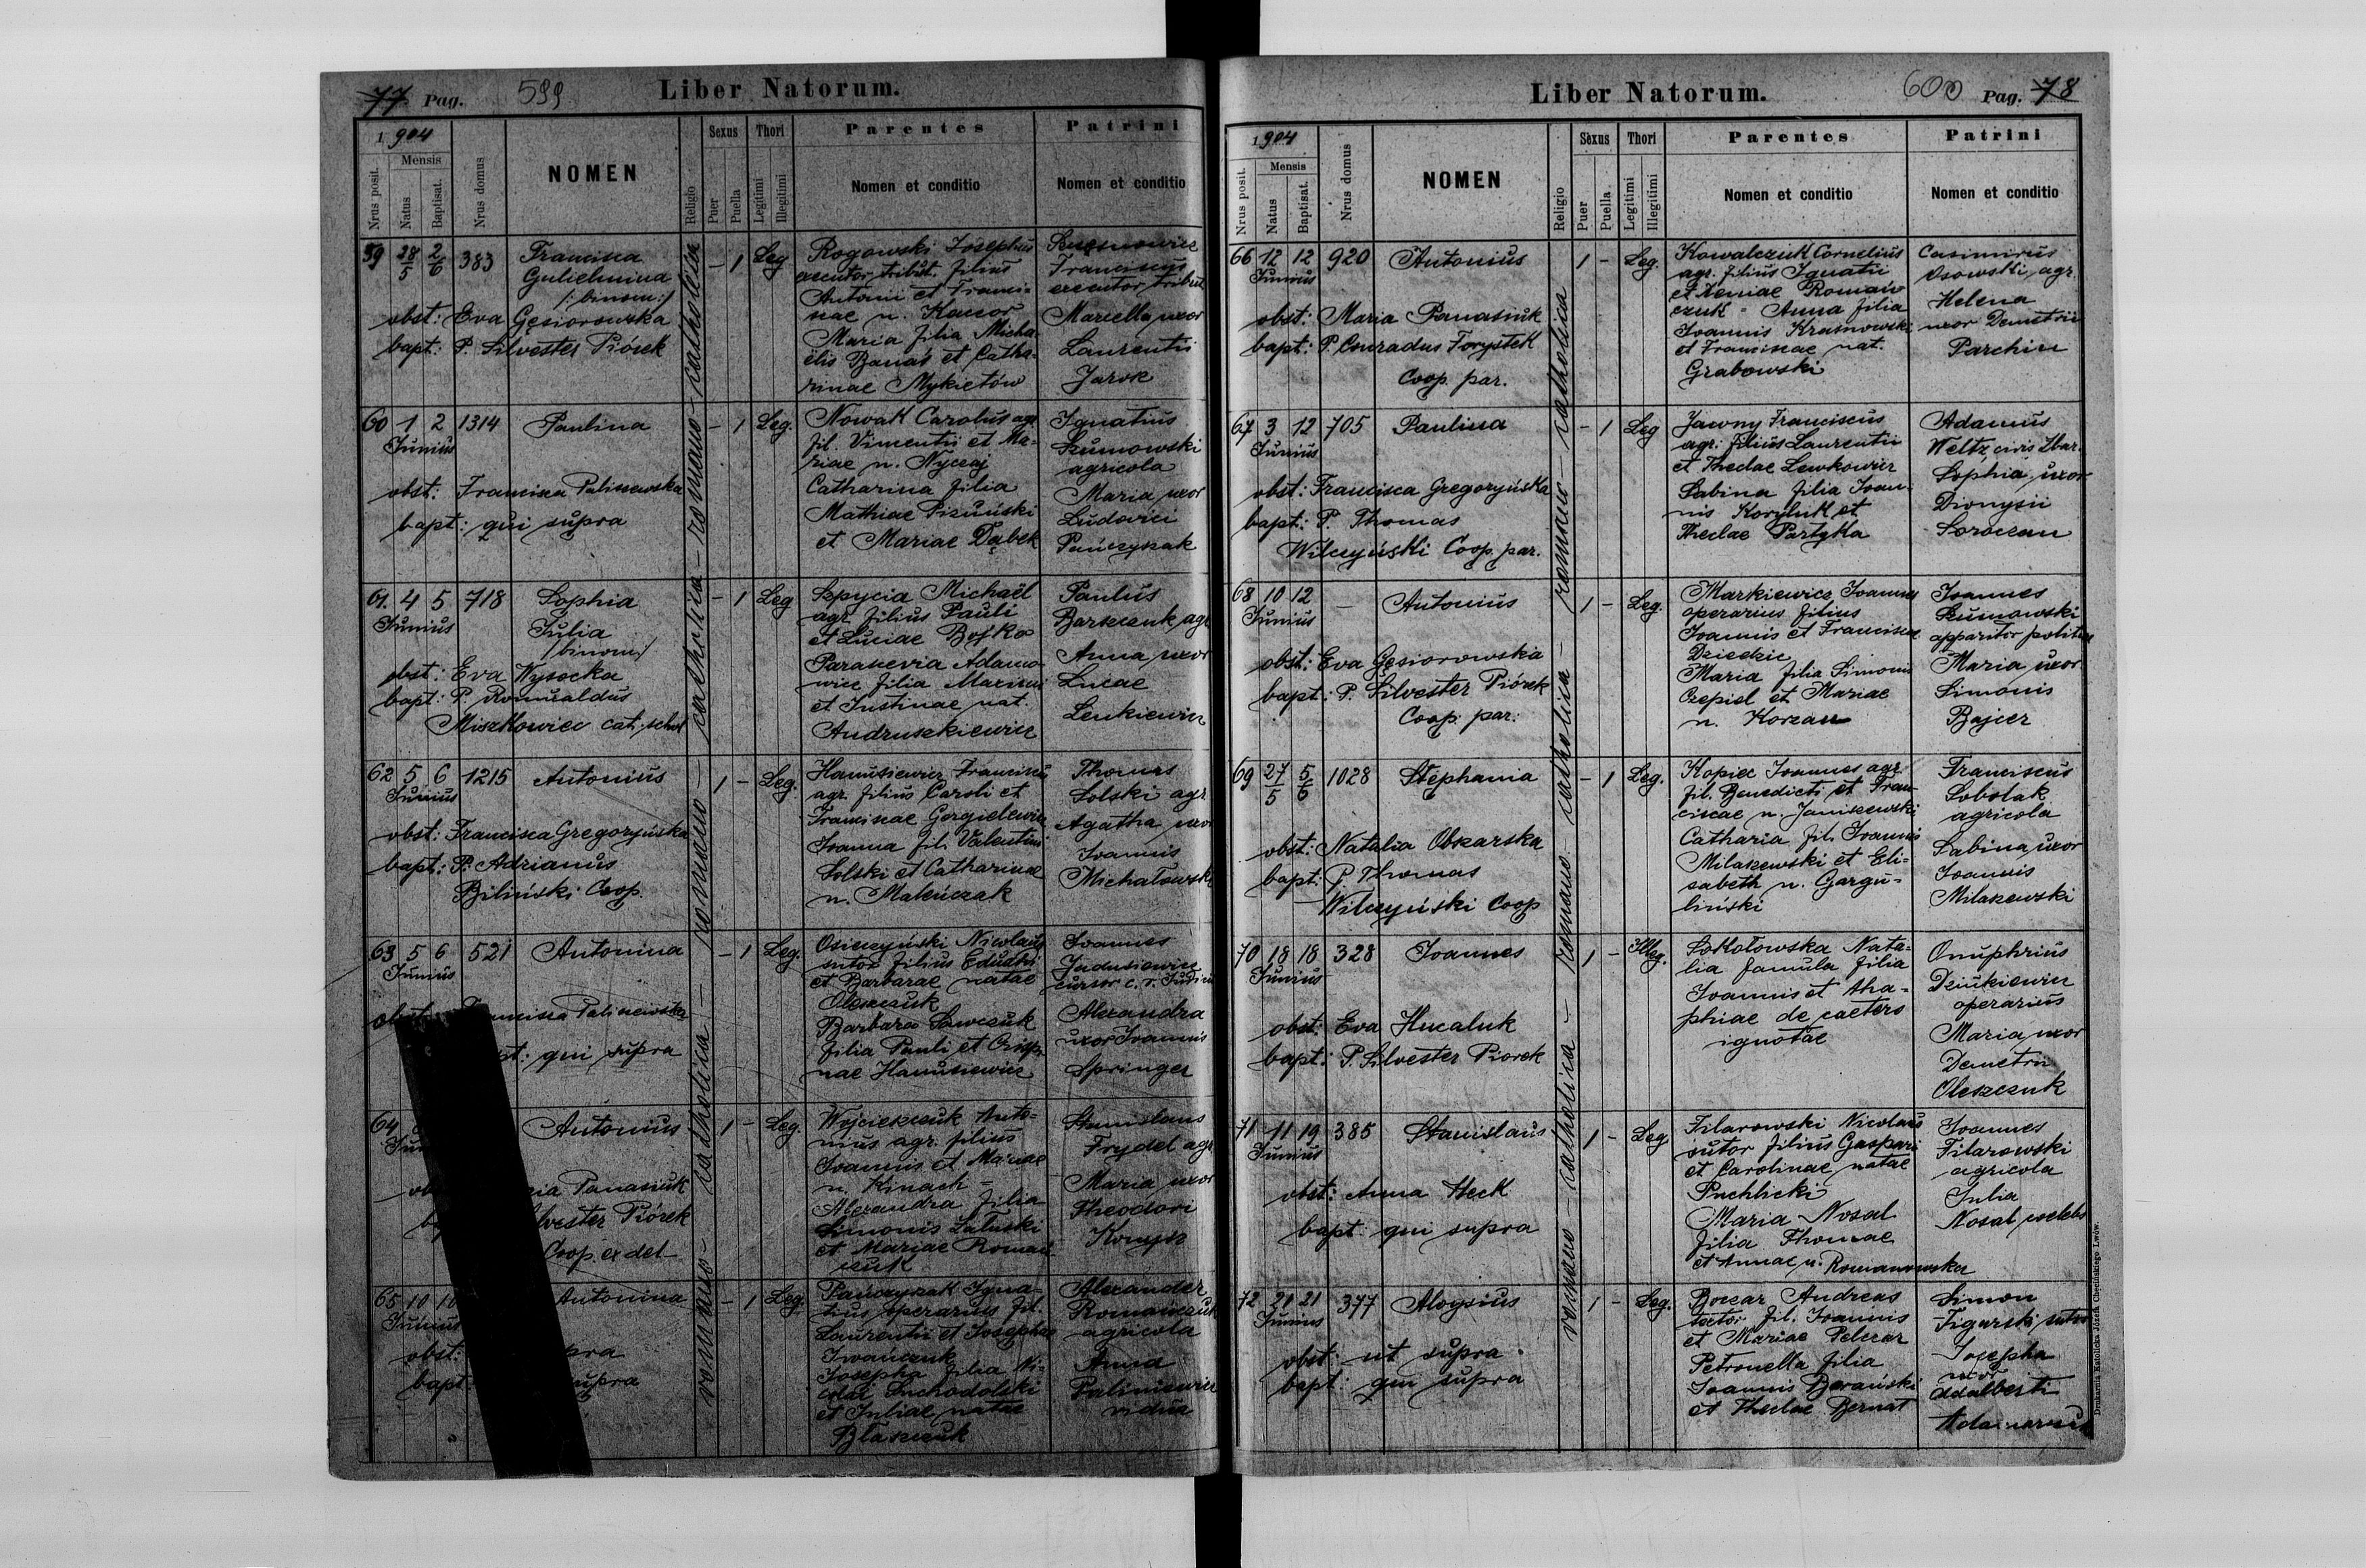 77 Pag. 599 Liber Natorum.
1904
Nrus posit.
Mensis
Natus
Baptisat.
Nrus domus
NOMEN
Religio
Sexus
Puer
Puella
Thori
Legitimi
Illegitimi
Parentes
Nomen et conditio
Patrini
Nomen et conditio
romano - catholica - romano - catholica - romano - catholica
59 28/5 2/6 383 Francisca
Gulielmina
/:binom:/
obst: Eva Gęsiorowska
bapt: P. Silvester Piórek
- 1 Leg
Rogowski Josephus
executor tribut. filius
Antonii et Franci-
scae n. Kaczor
Maria filia Micha-
ëlis Banaś et Catha-
rinae Mykietów
Franciscus
executor tribut
Marcella uxor
Laurentii
Jarok
60 1 2 1314 Paulina
Junius
obst: Francisca Paliszewska
bapt: qui supra
- 1 Leg.
Nowak Carolus agr
fil. Vincentii et Ma-
riae n. Nyczaj
Catharina filia
Mathiae Pizuński
et Mariae Dąbek
Ignatius
Szumowski
agricola
Maria uxor
Ludovici
Pańczyszak
61. 4 5 718 Sophia
Junius Julia
/binom/
obst: Eva Wysocka
bapt: P. Romualdus
Miszkowiec cat. schol
- 1 Leg
Szpycia Michaël
agr. filius Pauli
et Luciae Bojko
Parascevia Adamo-
wicz filia Maximi
et Justinae nat.
Andruszkiewicz
Paulus
Barszczuk agr
Anna uxor
Lucae
Lenkiewicz
62 5 6 1215 Antonius
Junius
obst: Francisca Gregoryńska
bapt: P. Adrianus
Biliński Coop.
1 - Leg.
Hanusiewicz Franciscus
agr. filius Caroli et
Franciscae Gorgielewicz
Joanna fil. Valentini
Solski et Catharinae
n. Maleńczak
Thomas
Solski agr
Agatha uxor
Joannis
Michałowski
63 5 6 521 Antonina
Junius
Francisca Paliszewska
bapt: qui supra
- 1 Leg.
Osiczyński Nicolaus
sutor filius Eduardi
et Barbarae natae
Oleszczuk
Barbara Sawczuk
filia Pauli et Crispi-
nae Hanusiewicz
Joannes
Jadusiewicz
cursor c. r. Judicii
Alexandra
uxor Joannis
Springer
64 Antonius
Panasiuk
Silvester Piórek
Coop. ex del
1 - Leg.
Wojcieszczuk Anto-
nius agr. filius
Joannis et Mariae
n. Kinach -
Alexandra filia
Simonis Załuski
et Mariae Roman-
czuk
Stanislaus
Frydel agr
Maria uxor
Theodori
65 10 10 Antonina
Junius
obst: supra
bapt: supra
- 1 Leg
Pańczyszak Igna-
tius operarius fil.
Laurentii et Josephae
Iwańczuk
Josepha filia Ni-
colai Suchodolski
et Juliae natae
Błaszczuk
Alexander
Romańczuk
agricola
Anna
Paliniewicz
vidua
Liber Natorum. 600 Pag. 78
1904
Nrus posit.
Mensis
Natus
Baptisat.
Nrus domus
NOMEN
Religio
Sexus
Puer
Puella
Thori
Legitimi
Illegitimi
Parentes
Nomen et conditio
Patrini
Nomen et conditio
romano - catholica - romano - catholica - romano - catholica
66 12 12 920 Antonius
Junius
obst: Maria Panasiuk
bapt: P. Conradus Forystek
Coop. par.
1 - Leg.
Kowalczuk Cornelius
agr. filius Ignatii
et Xeniae Roman-
czuk - Anna filia
Joannis Krasnowski
et Franciscae nat.
Grabowski
Casimirus
Osowski, agr.
Helena
uxor Demetrii
Parchin
67 3 12 705 Paulina
Junius
obst: Francisca Gregoryńska
bapt: P. Thomas
Wilczyński Coop. par.
- 1 Leg
Jawny Franciscus
agr: filius Laurentii
et Theclae Lewkowicz
Sabina filia Joan-
nis Koryluk et
Theclae Partyka
Adamus
Weltz, civis Zbar.
Sophia uxor
Dionysii
Soroczan
68 10 12 - Antonius
Junius
obst: Eva Gęsiorowska
bapt: P. Silvester Piórek
Coop. par.
1 - Leg.
Markiewicz Joannes
operarius filius
Joannis et Franciscae
Dzieckie
Maria filia Simonis
Czepiel et Mariae
n. Korzan
Joannes
Szumowski
apparitor politicae
Maria uxor
Simonis
Bajcer
69 27/5 5/6 1028 Stephania
obst: Natalia Obszarska
bapt: P. Thomas
Wilczyński Coop
- 1 Leg.
Kopiec Joannes agr
fil. Benedicti et Fran-
ciscae n. Janiszewski
Catharia fil. Joannis
Milaszewski et Eli-
sabeth n. Gargu-
liński
Franciscus
Sobolak
agricola
Sabina uxor
Joannis
Milaszewski
70 18 18 328 Joannes
Junius
obst: Eva Hucaluk
bapt: P. Silvester Piorek
1 - Illeg.
Sokołowska Nata-
lia famula filia
Joannis et Aga-
phiae de caetero
ignotae
Onuphrius
Dziukiewicz
operarius
Maria uxor
Demetrii
Oleszczuk
71 11 19 385 Stanislaus
Junius
obst: Anna Heck
bapt qui supra
1 - Leg
Filarowski Nicolaus
sutor filius Gaspari
et Carolinae natae
Puchlicki
Maria Nosal
filia Thomae
et Annae n. Romanowska
Joannes
Filarowski
agricola
Julia
Nosal coelebs
72 21 21 377 Aloysius
Junius
obst: ut supra
bapt: qui supra
1 - Leg.
Boczar Andreas
tector fil. Joannis
et Mariae Pelczar
Petronella filia
Joannis Barański
et Theclae Bernat
Simon
Figurski sutor
Josepha
uxor
Adalberti
Drukarnia Katolicka Józefa Chęcińskiego Lwów.